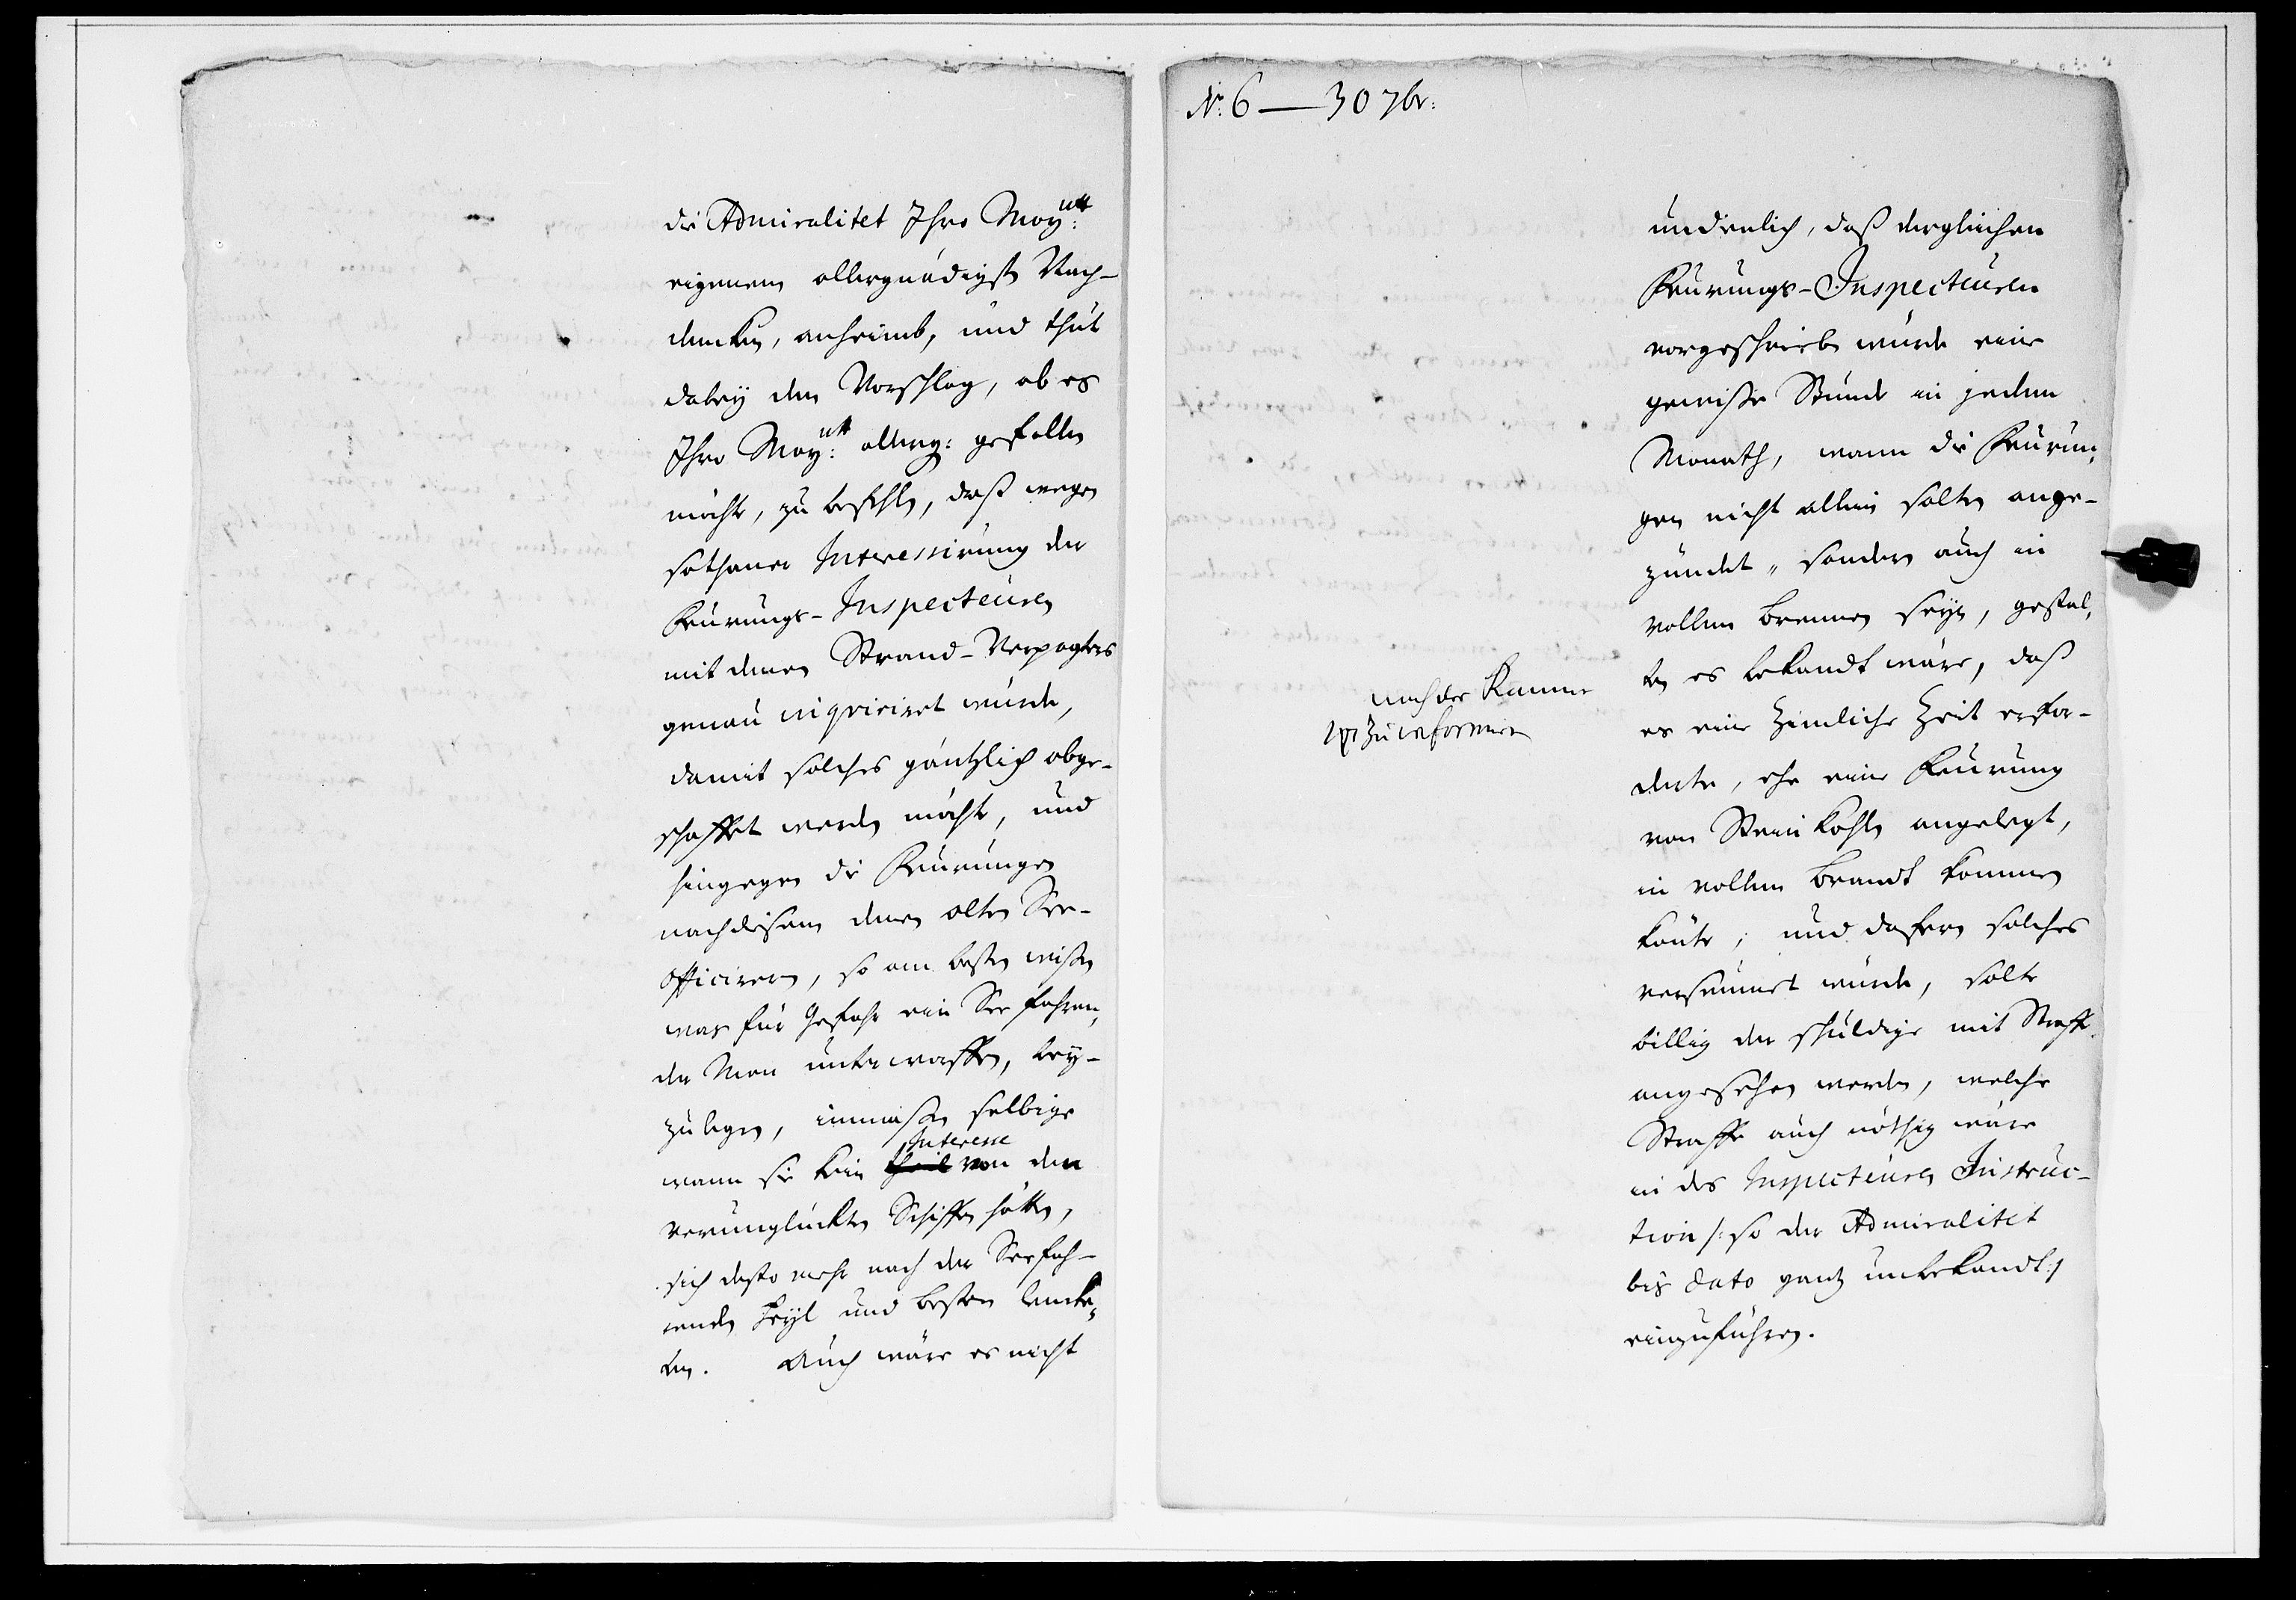 die Admiralitet Ihro Maytt:
eigenem allergnädigst Nach-
dencken, anheimb, und thut
dabey den Vorschlag, ob es
Ihro Maytt: allerg: gefallen
möchte, zu befehlen, daß wegen
sothaner Interessirung der
Feurungs-Inspecteuren
mit denen Strand-Verpagters
genau inquiriret würde,
damit solches gäntzlich abge-
schaffet werden möchte, und
hingegen die Feurungen
nachdehsem denen alten See-
Officirern, so am besten wißen
was für Gefahr ein See fahren,
der Man unterworffen, bey-
zulegen, inmaßen selbige
wann sie kein Interesse von den
verunglückten Schiffen hätten,
sich desto mehr nach der Seefah-
renden Heyl und besten lencke,
ten. Auch wäre es nicht
No: 6 — 30 7br:
undienlich, daß dergleichen
Feurungs-Inspecteuren
vorgeschrieben würde eine
gewiße Stunde in jedem
Monath, wann die Feurun,
gen nicht allein solten ange-
zündet, sondern auch in
vollem brennen seyn, gestal,
ten es bekandt wäre, daß
es eine Zimliche Zeit erfor-
derte, ehe eine Feurung
von Steinkohlen angelegt,
in vollem brandt kommen
könte; und dafern solches
versäumet würde, solte
billig der schuldige mit Straffe
angesehen werden, welche
Straffe auch nöthig wäre
in des Inspecteuren Instruc-
tion /: so der Admiralitet
bis dato gantz unbekandt :/
einzuführen.
nach der Kammer
zu informiren